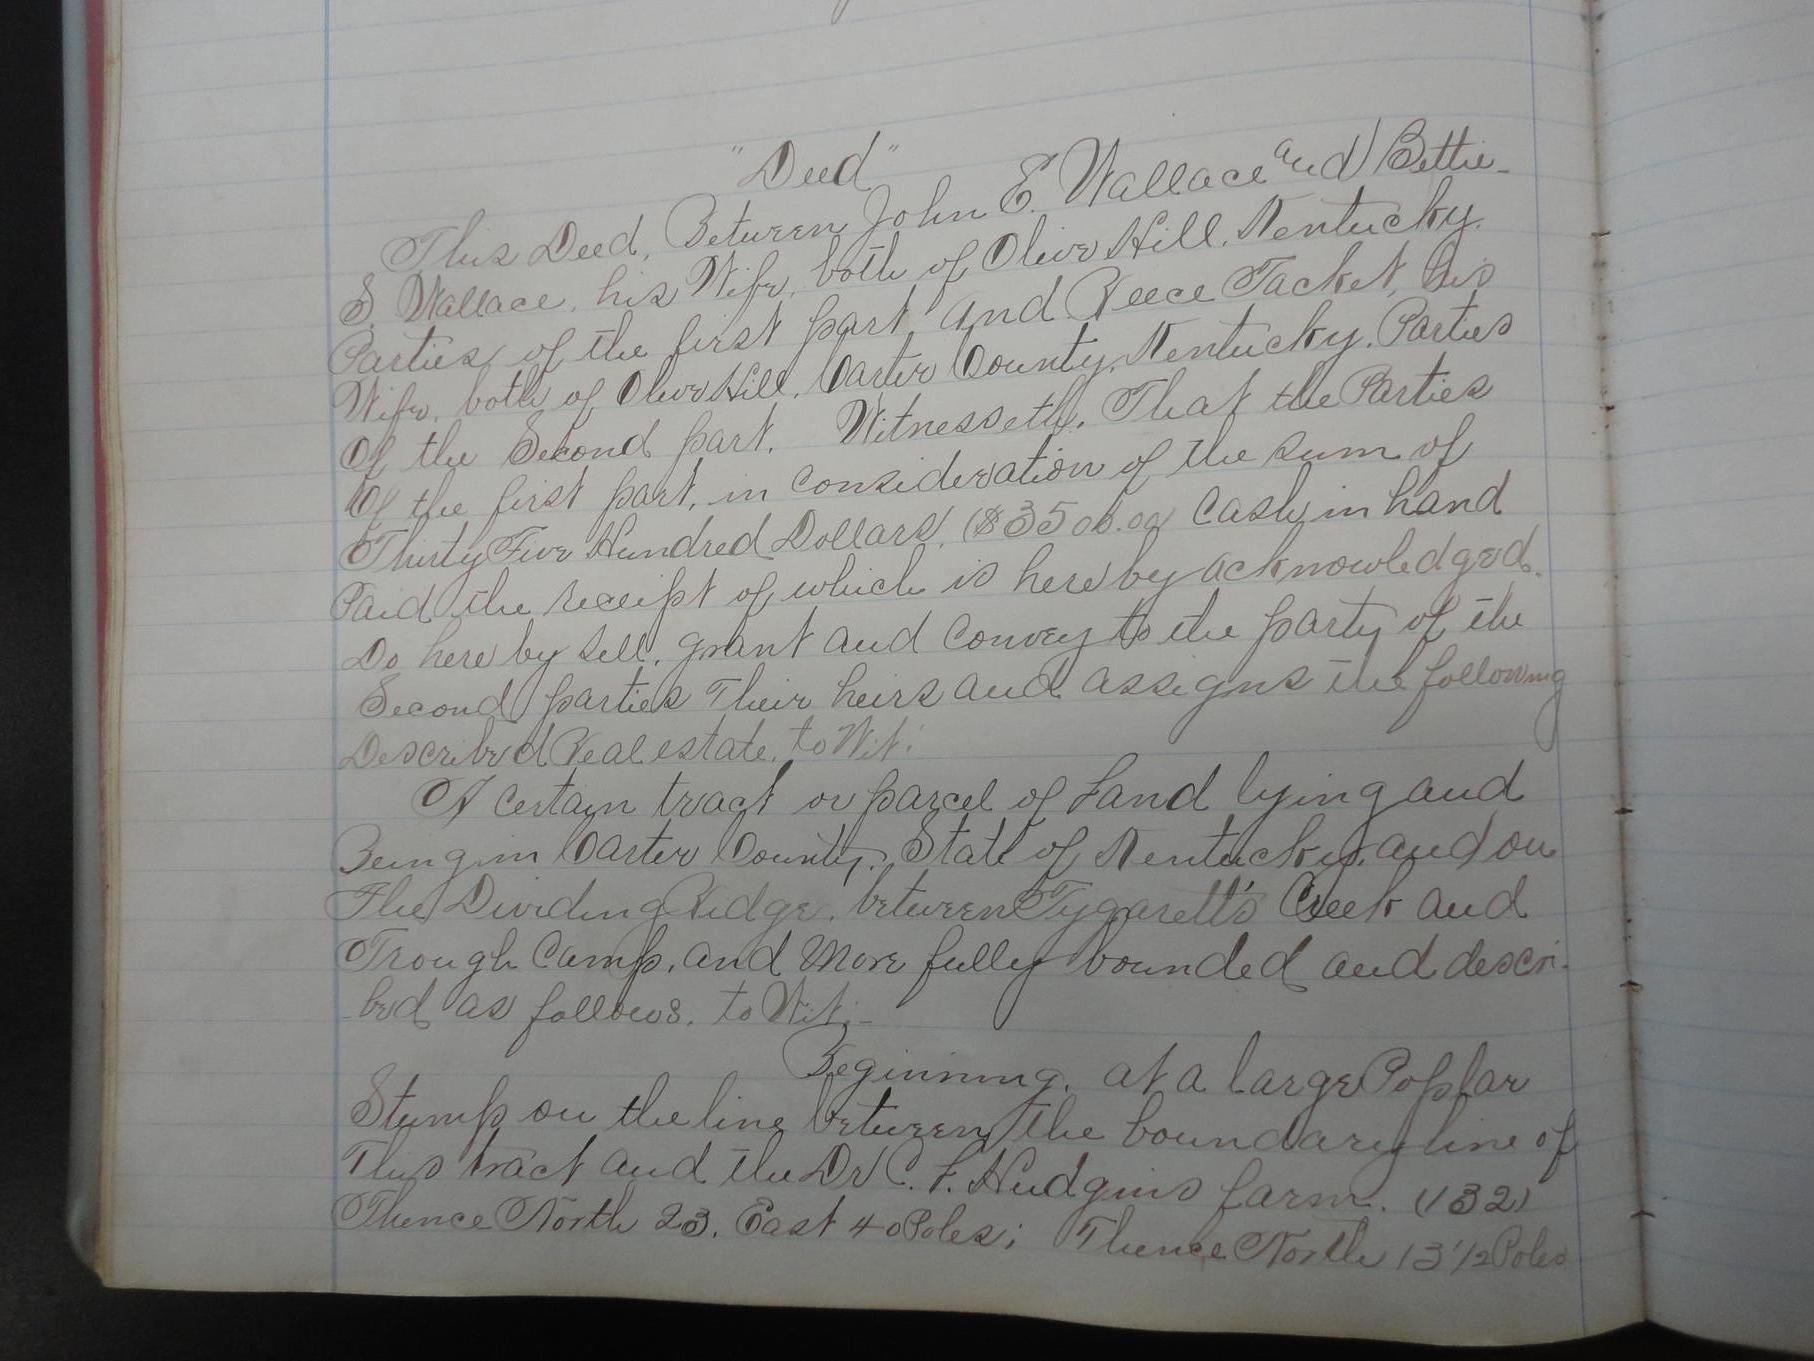 "Deed"
This Deed, Between John E. Wallace and Bettie
S. Wallace, his Wife, both of Olive Hill, Kentucky.
Parties of the first part and Reece Tacket, his
Wife, both of Olive Hill, Carter County, Kentucky. Parties
Of the Second part. Witnesseth, That the Parties
Of the first part, in consideration of the sum of
Thirty Five Hundred Dollars, ($3500.00) Cash, in hand
Paid the receipt of which is here by acknowledged.
Do here by sell, grant and convey to the party of the
Second parties Their heirs and assigns the following
Described Real estate, to Wit:
A certain tract or parcel of Land lying and
Being in Carter County, State of Kentucky, and on
The Dividing Ridge, between Tygarett's Creek and
Trough Camp, and More fully bounded and descri-
-bed as follows. to Wit:-
Beginning, at a large Poplar
Stump on the line between the boundary line of
This tract and the Dr C. F. Hudgins farm. (132)
Thence North 23. East 40 Poles; Thence North 13 1/2 Poles